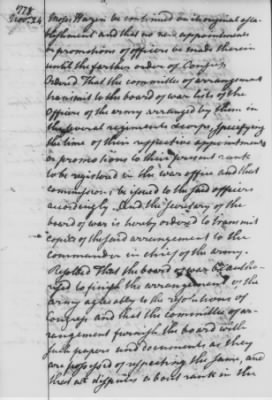 1778
Nov. 24
Moses Hazen be continued on its original esta-
blishment and that no new appointments
or promotions of officers be made therein
until the farther order of Congress
Ordered That the committee of arrangement
transmit to the board of war lists of the
Officers of the army arranged by them in
the several regiments & corps specifying
the time of their respective appointments
or promotions to their present rank
to be registered in the war office and that
commissions be issued to the said officers
accordingly. And the secretary of the
board of war is hereby ordered to transmit
copies of the said arrangement to the
commander in chief of the army.
Resolved That the board of war be autho-
rised to finish the arrangement of the
army agreeably to the resolutions of
Congress and that the committee of ar-
rangement furnish the board with
such papers and documents as they
are possessed of respecting the same, and
that all disputes about rank in the